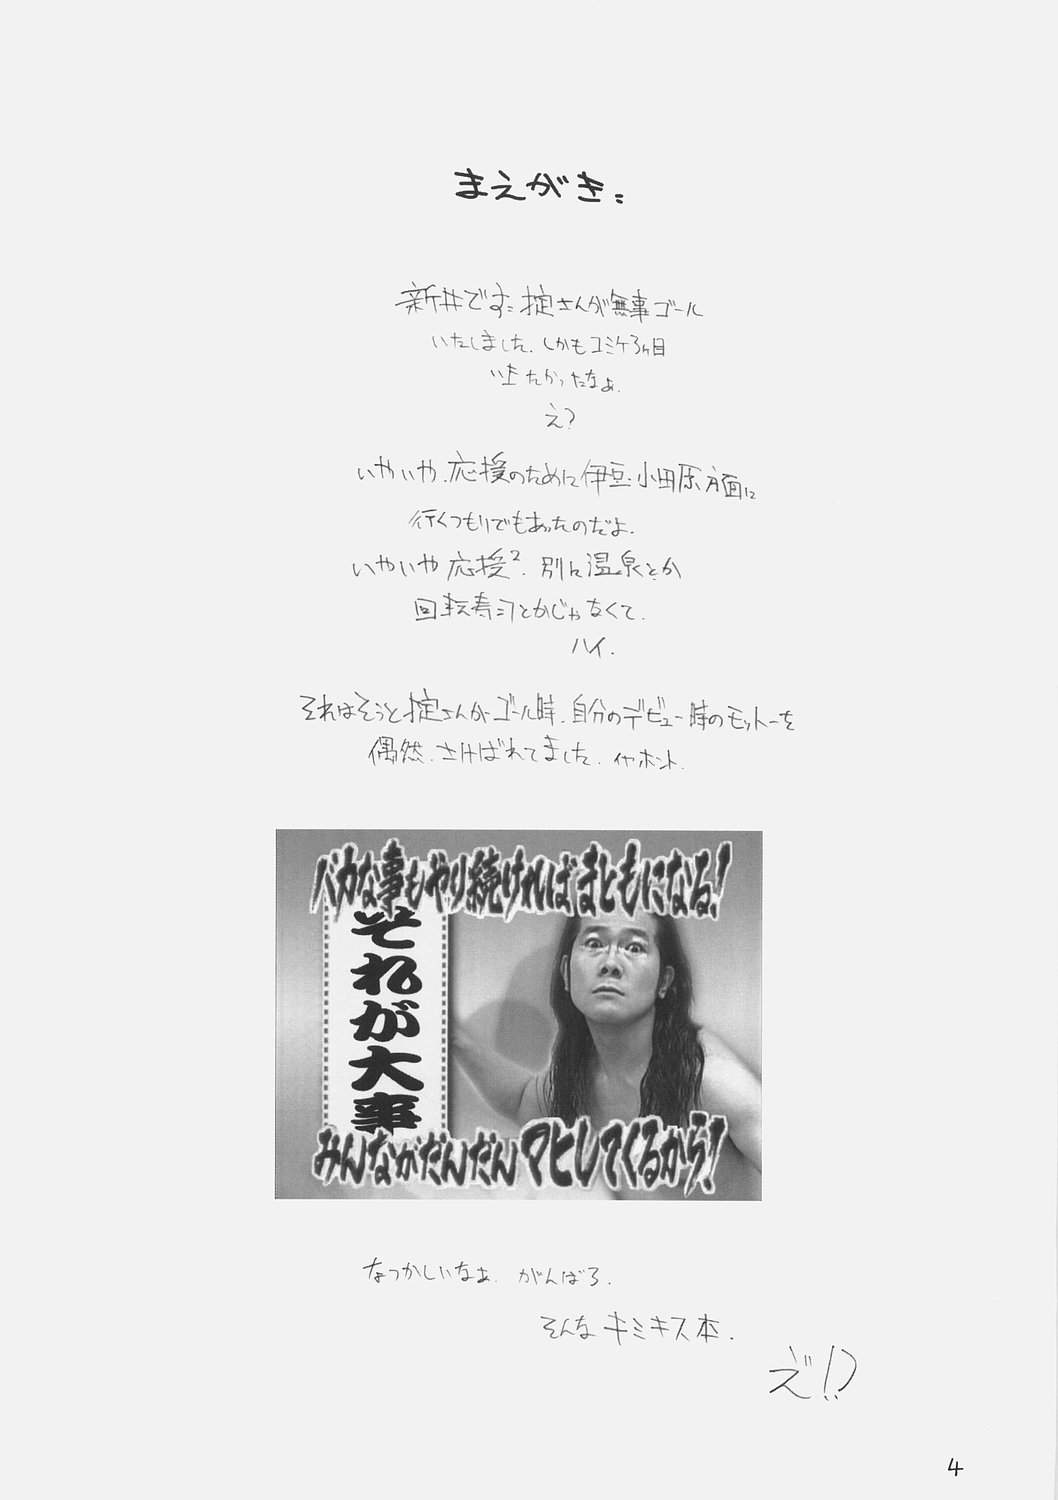 まえがき:
新井です。掟さんが無事ゴール
いたしました。しかもコミケ3日目
いきたかったなぁ。
え?
いやいや、応援のために伊豆・小田原方面に
行くつもりでもあったのだよ。
いやいや応援²。別に温泉とか
回転寿司とかじゃなくて。
ハイ。
それはそうと掟さんがゴール時、自分のデビュー時のモットーを
偶然、さけばれてました。イヤホント。
バカな事もやり続ければまともになる!
それが大事
みんながだんだんマヒしてくるから!
なつかしいなぁ。がんばろ。
そんなキミキス本。
え゛!?
4